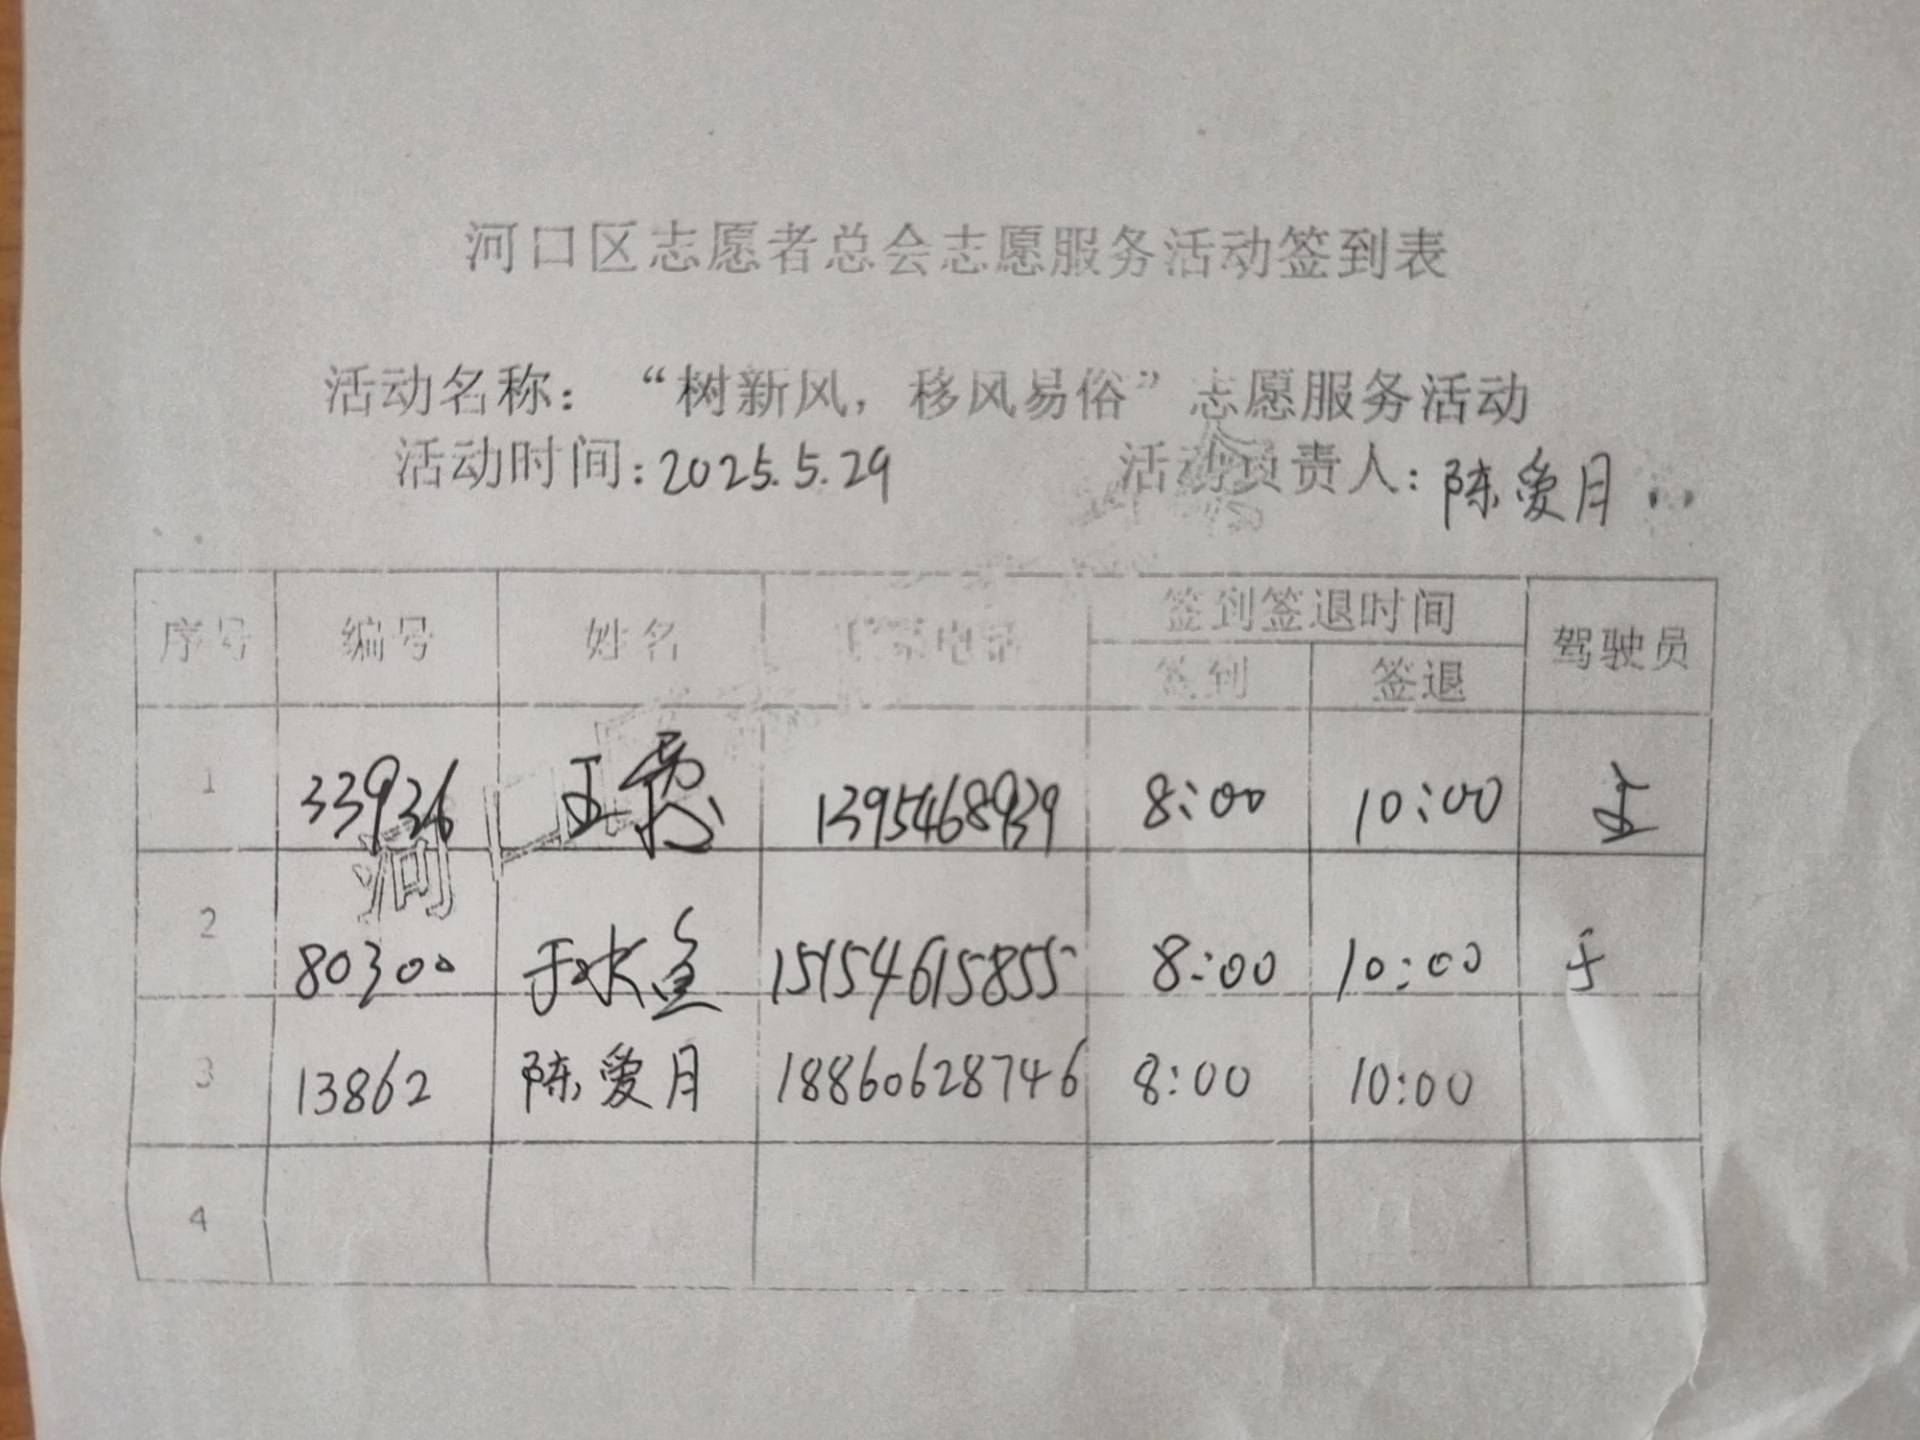 河口区志愿者总会志愿服务活动签到表
活动名称：“树新风，移风易俗”志愿服务活动
活动时间：2025.5.29 活动负责人：陈爱月
序号 编号 姓名 联系电话 签到签退时间 驾驶员
签到 签退
1 33936 王 1395468939 8:00 10:00 王
河口
2 80300 于冰鱼 15154615855 8:00 10:00 于
3 13862 陈爱月 18860628746 8:00 10:00
4